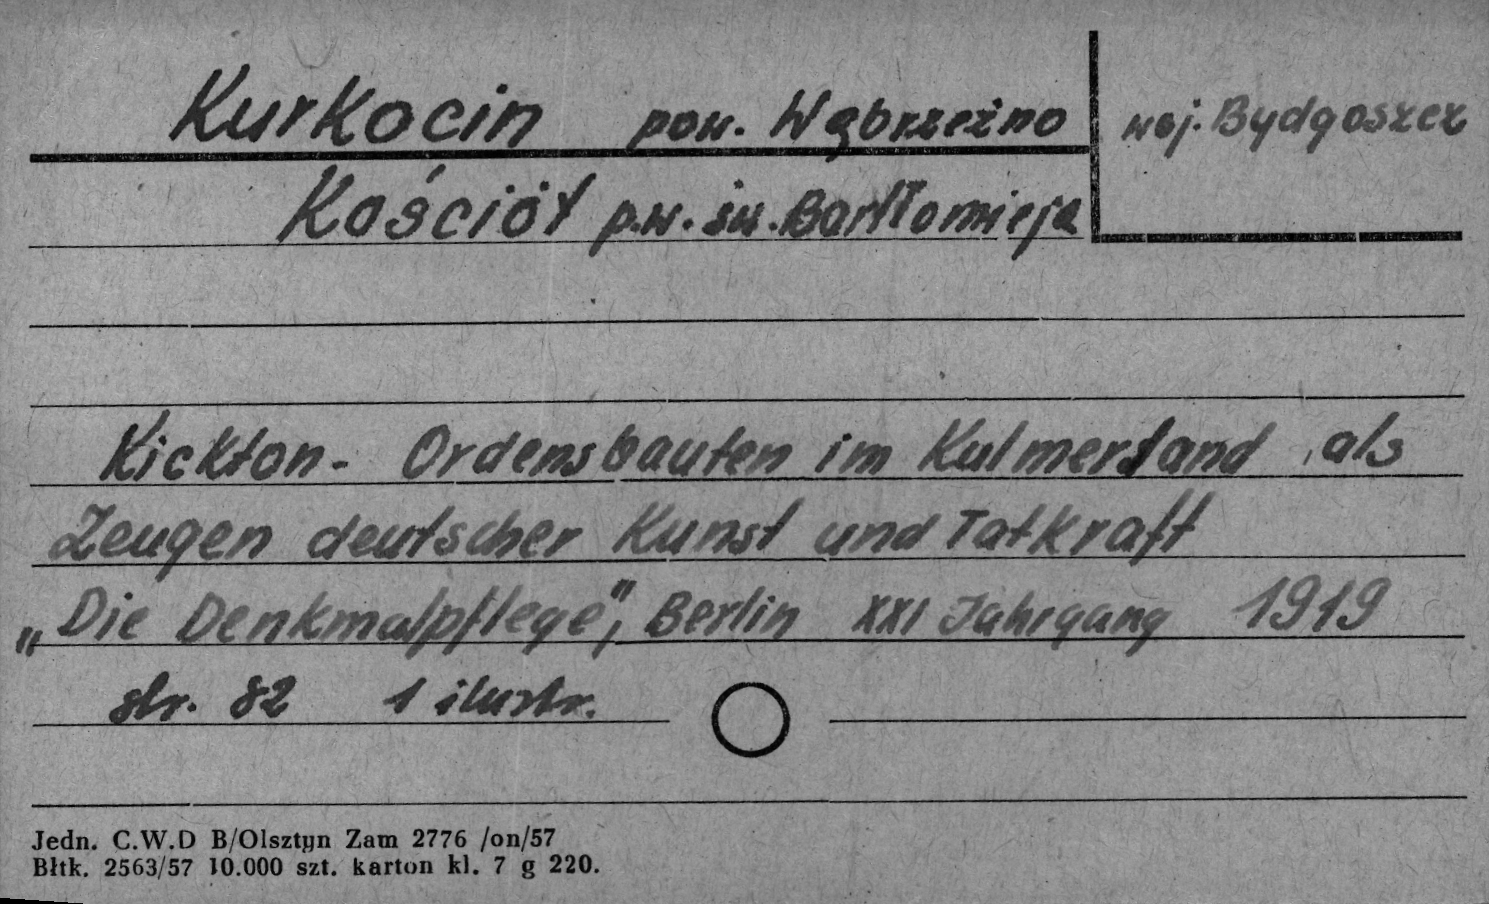 Kurkocin pow. Wąbrzeźno woj. Bydgoszcz
Kościół p.w. św. Bartłomieja
Kickton - Ordensbauten im Kulmerland, als
Zeugen deutscher Kunst und Tatkraft
„Die Denkmalpflege", Berlin XXI Jahrgang 1919
str. 82 1 ilustr.
Jedn. C.W.D B/Olsztyn Zam 2776 /on/57
Błtk. 2563/57 10.000 szt. karton kl. 7 g 220.